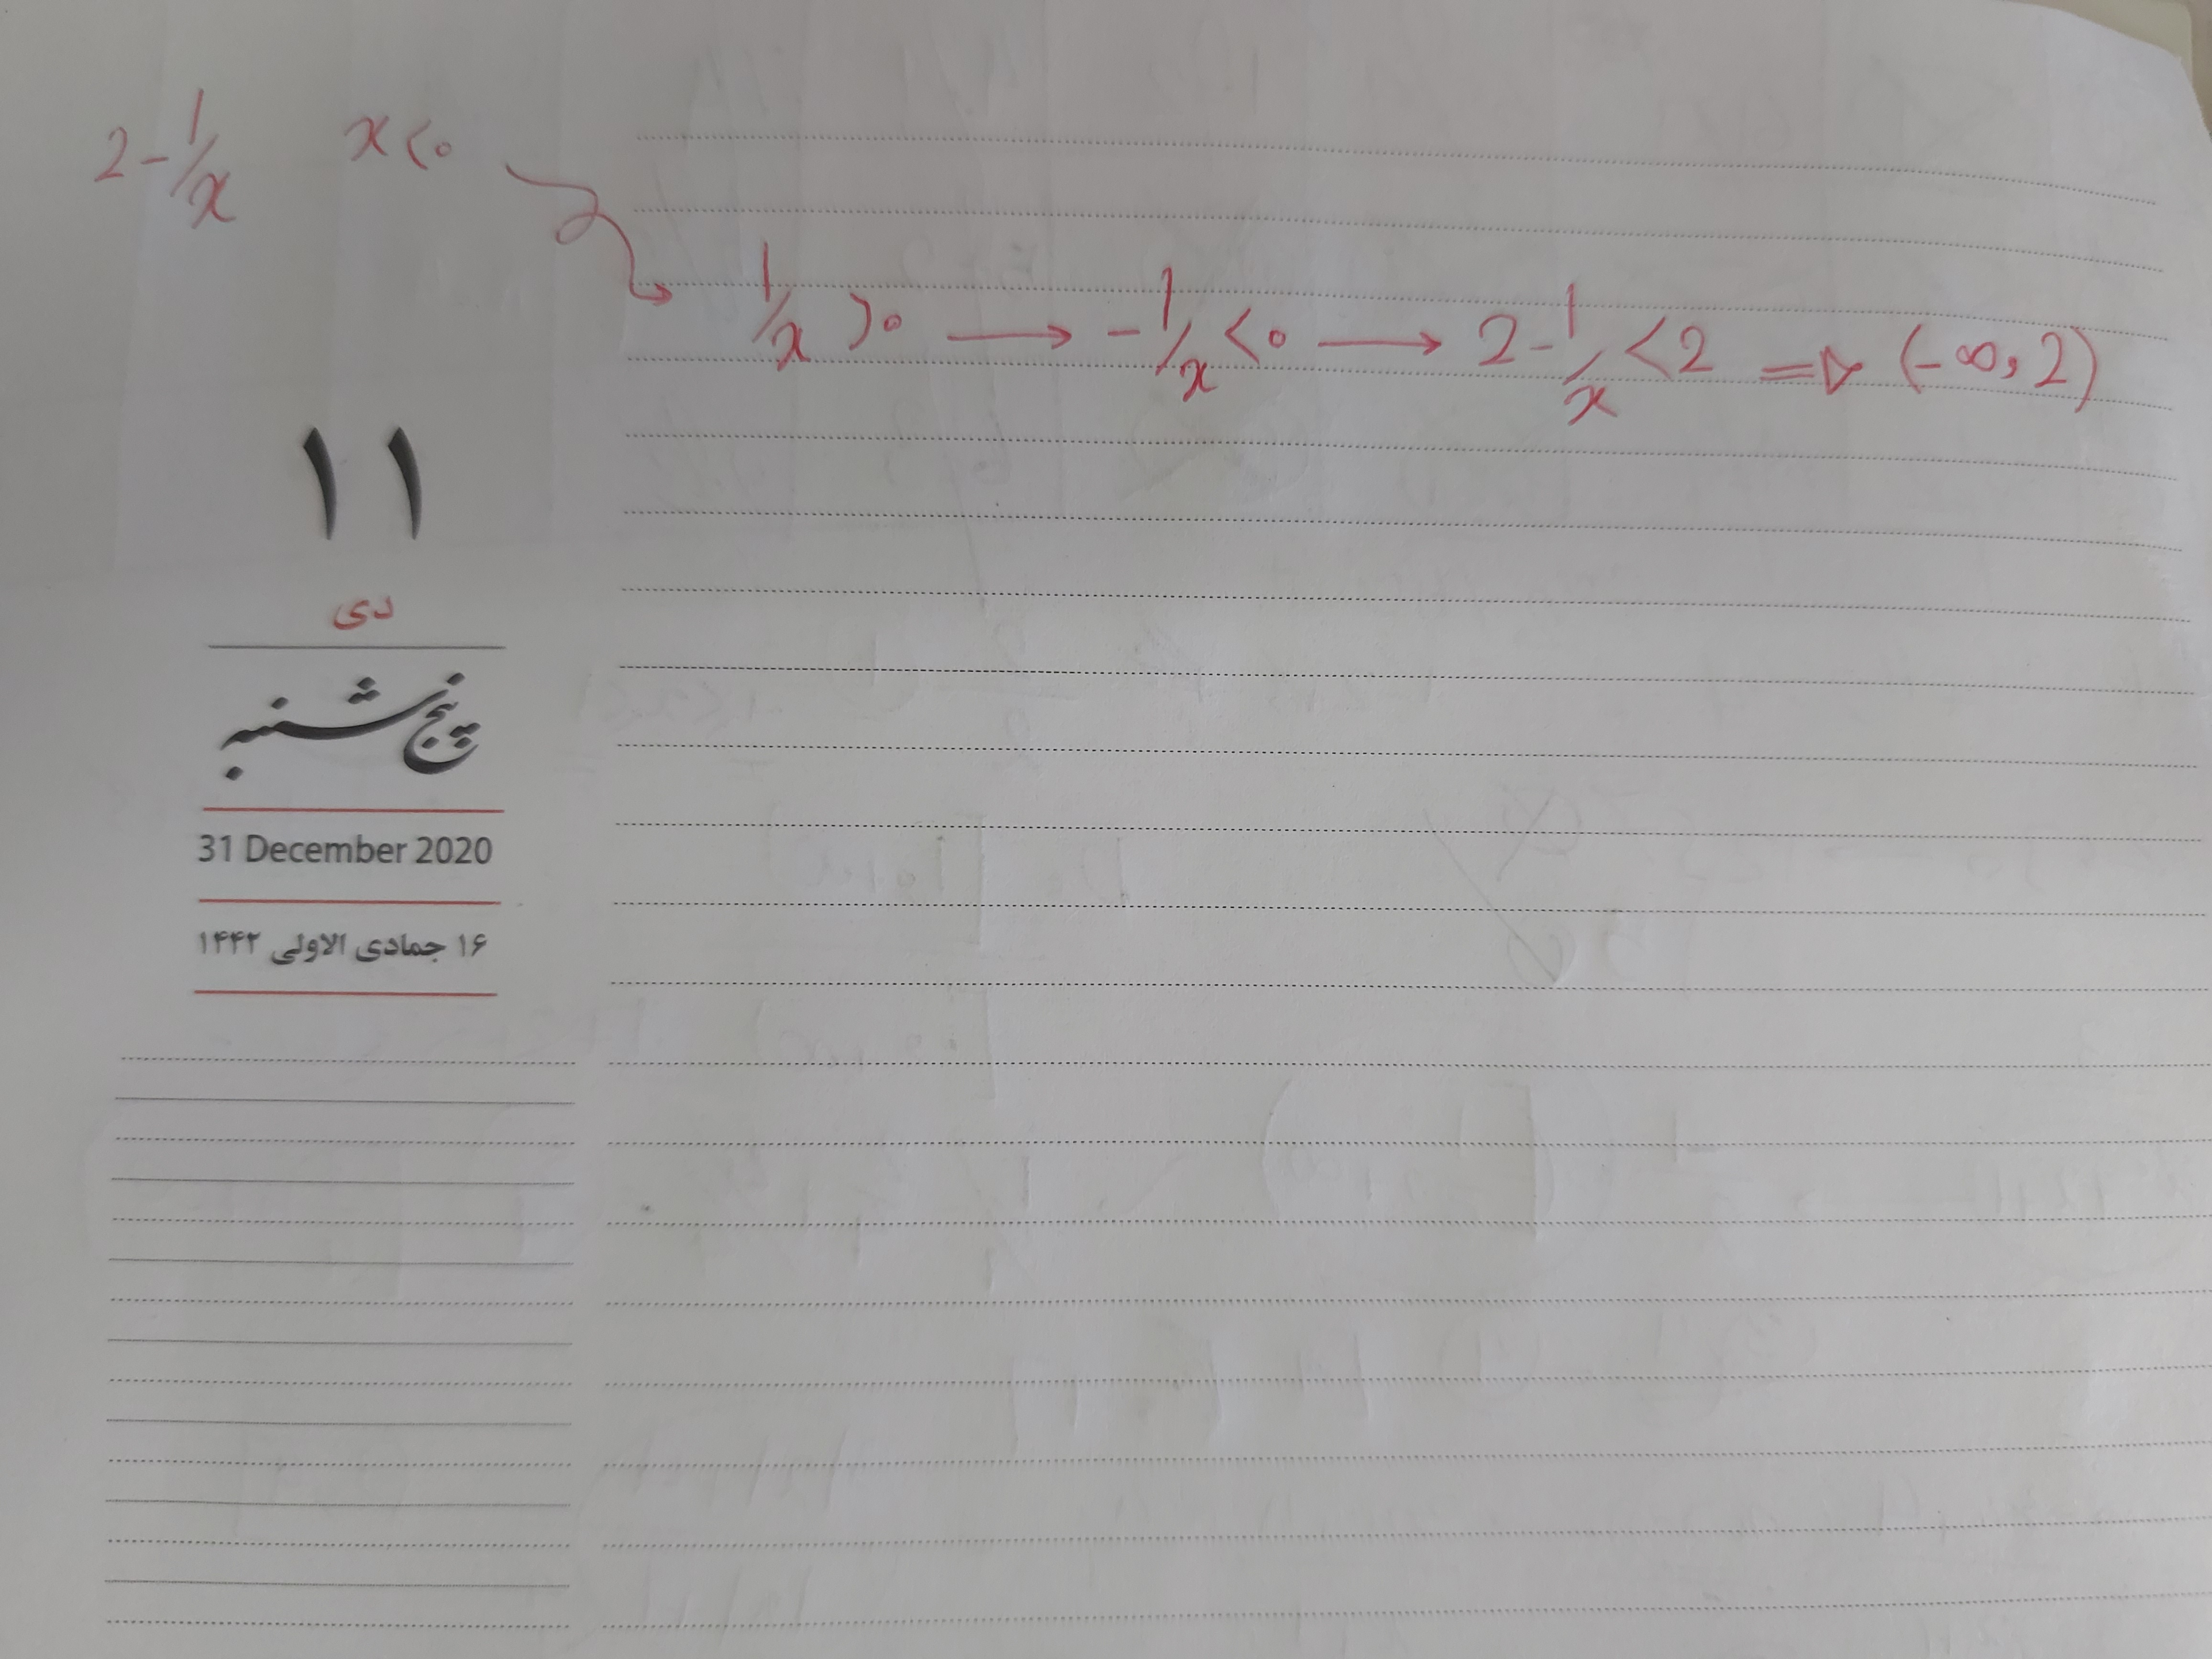 2-1/x x<0
1/x >0 → -1/x <0 → 2-1/x <2 ⇒ (-∞, 2)
۱۱
دی
پنج‌شنبه
31 December 2020
۱۶ جمادی الاولی ۱۴۴۲